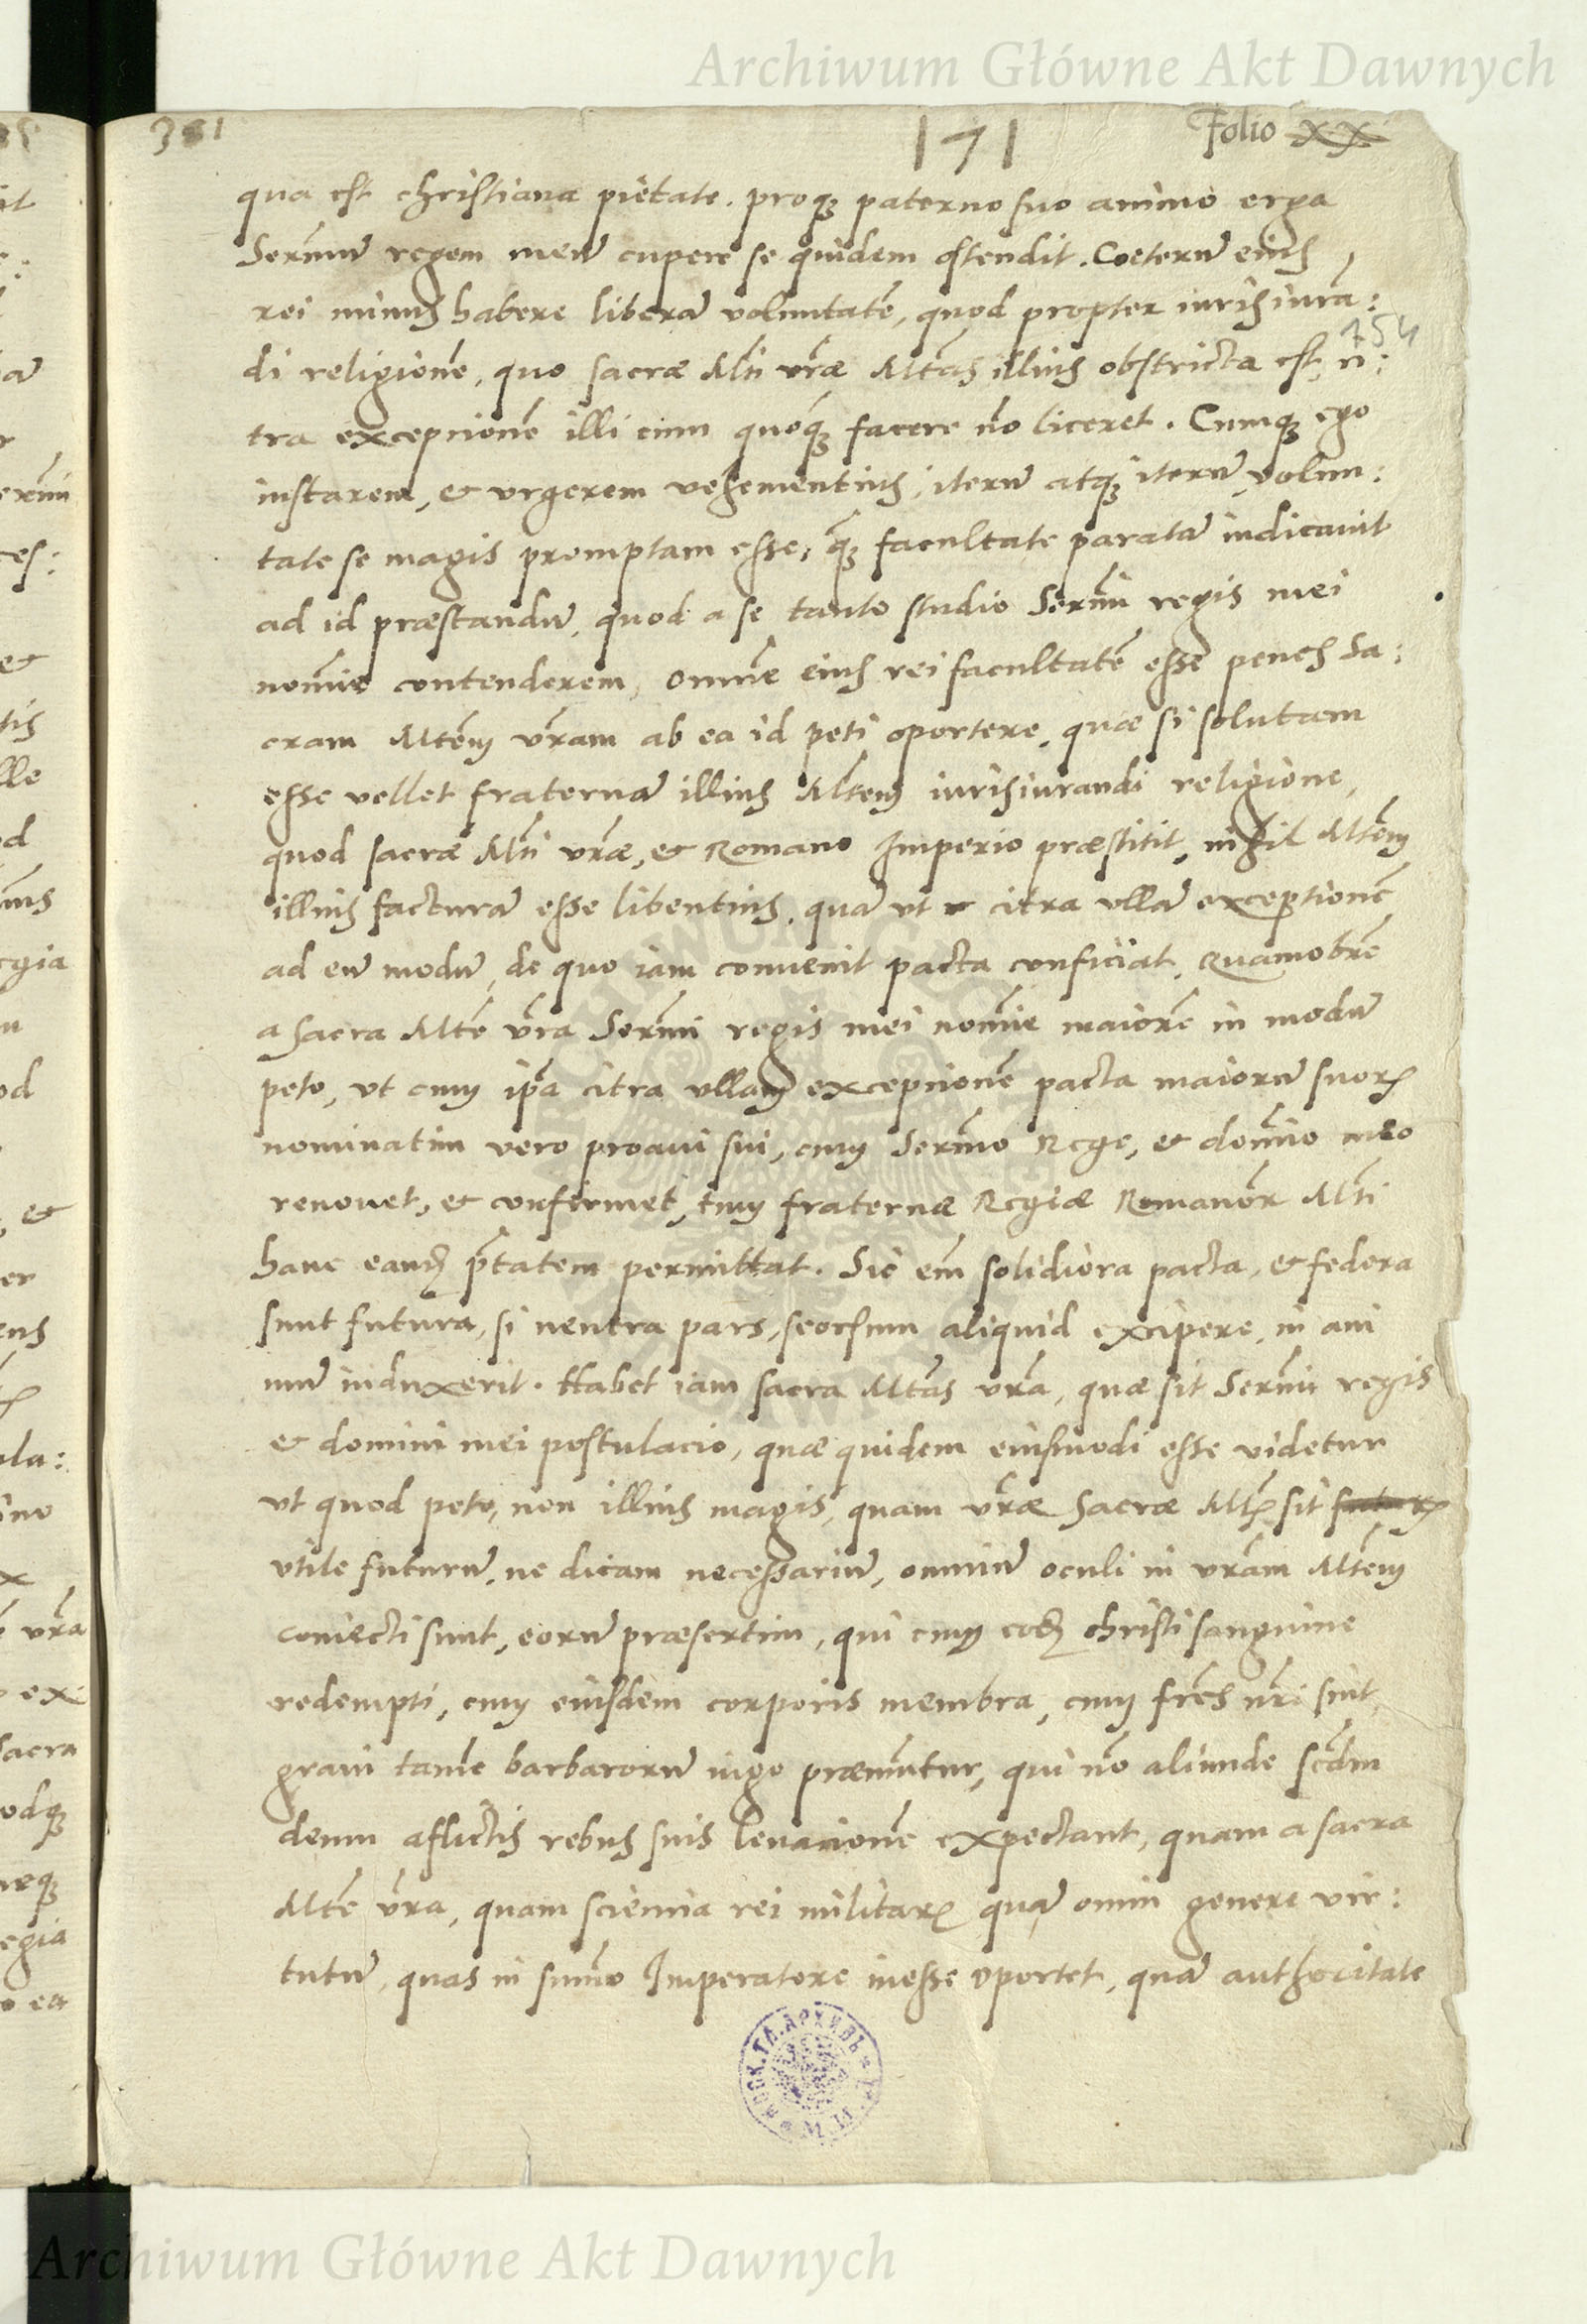 Archiwum Główne Akt Dawnych
381
171
Folio xx
qua est christiana pietate. proq3 paterno suo animo erga
Sermu̅ regem meu̅ cupere se quidem ostendit. Coeteru̅ eius
rei minus habere libera̅ voluntate̅, quod propter iurisiura̅:
754
di religione̅, quo sacræ Mti vræ Mtas illius obstricta est, ci:
tra excepcione̅ illi cum quoq3 facere no̅ liceret. Cumq3 ego
instarem, & urgerem vehementius, iteru̅ atq3 iteru̅, volun:
tate se magis promptam esse, q3 facultate parata̅ indicavit
ad id præstandu̅, quod a se tanto studio Sermi regis mei
nomie̅ contenderem, omne̅ eius rei facultate̅ esse penes Sa:
cram Mtem vram ab ea id peti oportere, quæ si solutam
esse vellet fraterna̅ illius Mtem iurisiurandi religione,
quod sacræ Mti vræ, & Romano Imperio præstitit, nihil Mtem
illius factura̅ esse libentius, qua̅ ut citra ulla̅ exceptione̅
ad eu̅ modu̅, de quo iam convenit pacta conficiat. Quamobre̅
a sacra Mte vra Sermi regis mei nomie̅ maiore̅ in modu̅
peto, ut cum ipa̅ citra ullam excepcione̅ pacta maioru̅ suor̅
nominatim vero proavi sui, cum Sermo Rege, & domino meo
renovet, & confirmet, tum fraternæ Regiæ Romanor̅ Mti
hanc eand̅ ptatem permittat. Sic em̅ solidiora pacta, & federa
sunt futura, si neutra pars, seorsum aliquid excipere, in ani
mu̅ induxerit. Habet iam sacra Mtas vra, quæ sit Sermi regis
& domini mei postulacio, quæ quidem eiusmodi esse videtur
ut quod peto, non illius magis, quam vræ Sacræ Mtis sit
utile futuru̅, ne dicam necessariu̅, omniu̅ oculi in vram Mtem
coniecti sunt, eoru̅ præsertim, qui cum eod̅ christi sanguine
redempti, cum eiusdem corporis membra, cum fres nri sint,
gravi tame̅ barbaroru̅ iugo præmu̅tur, qui no̅ aliunde scdm
deum aflictis rebus suis levacione̅ expectant, quam a sacra
Mte vra, quam sciencia rei militar̅ qua̅ omni genere vir:
tutu̅, quas in sum̅o Imperatore inesse oportet, qua̅ authoritate
МОСК. ГЛ. АРХИВЪ
Archiwum Główne Akt Dawnych